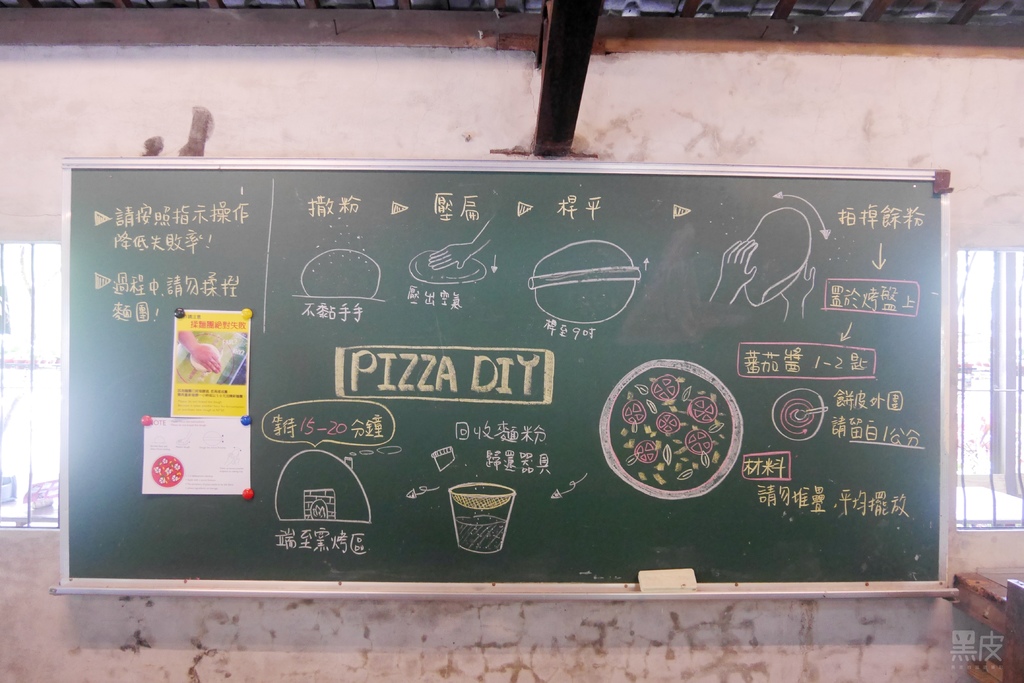 請按照指示操作
降低失敗率！
過程中，請勿揉捏
麵團！
揉麵團絕對失敗
撒粉
不黏手手
壓扁
壓出空氣
桿平
桿至9吋
拍掉餘粉
置於烤盤上
蕃茄醬 1-2匙
餅皮外圍
請留白1公分
材料
請勿堆疊，平均擺放
PIZZA DIY
回收麵粉
歸還器具
等待15-20分鐘
端至窯烤區
黑皮